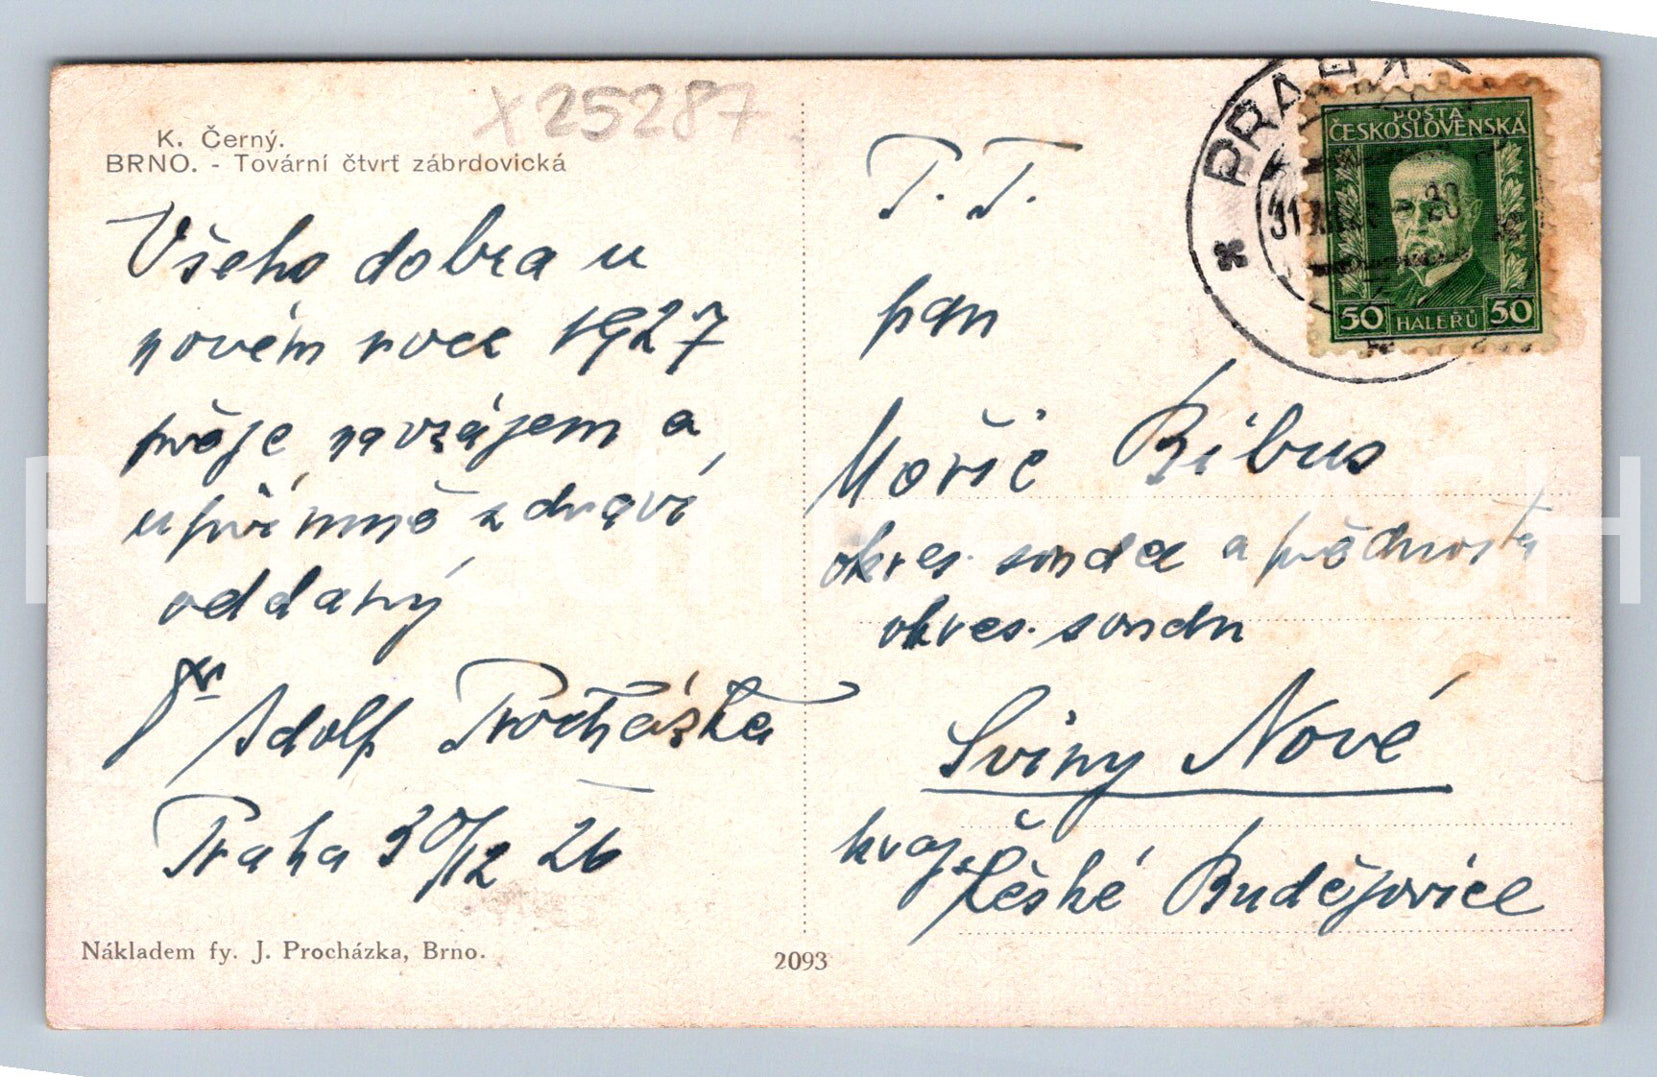 X 25287
K. Černý.
BRNO. - Tovární čtvrť zábrdovická
Všeho dobra u
novém roce 1927
přeje navzájem a
upřímně zdraví
oddaný
Dr Adolf Procházka
Praha 30/12 26
Nákladem fy. J. Procházka, Brno.
2093
PRAHA
31 XII
POŠTA
ČESKOSLOVENSKÁ
50 HALÉŘŮ 50
T. T.
pan
Mořic Bibus
okres. soudce a přednosta
okres. soudu
Sviny Nové
kraj. České Budějovice